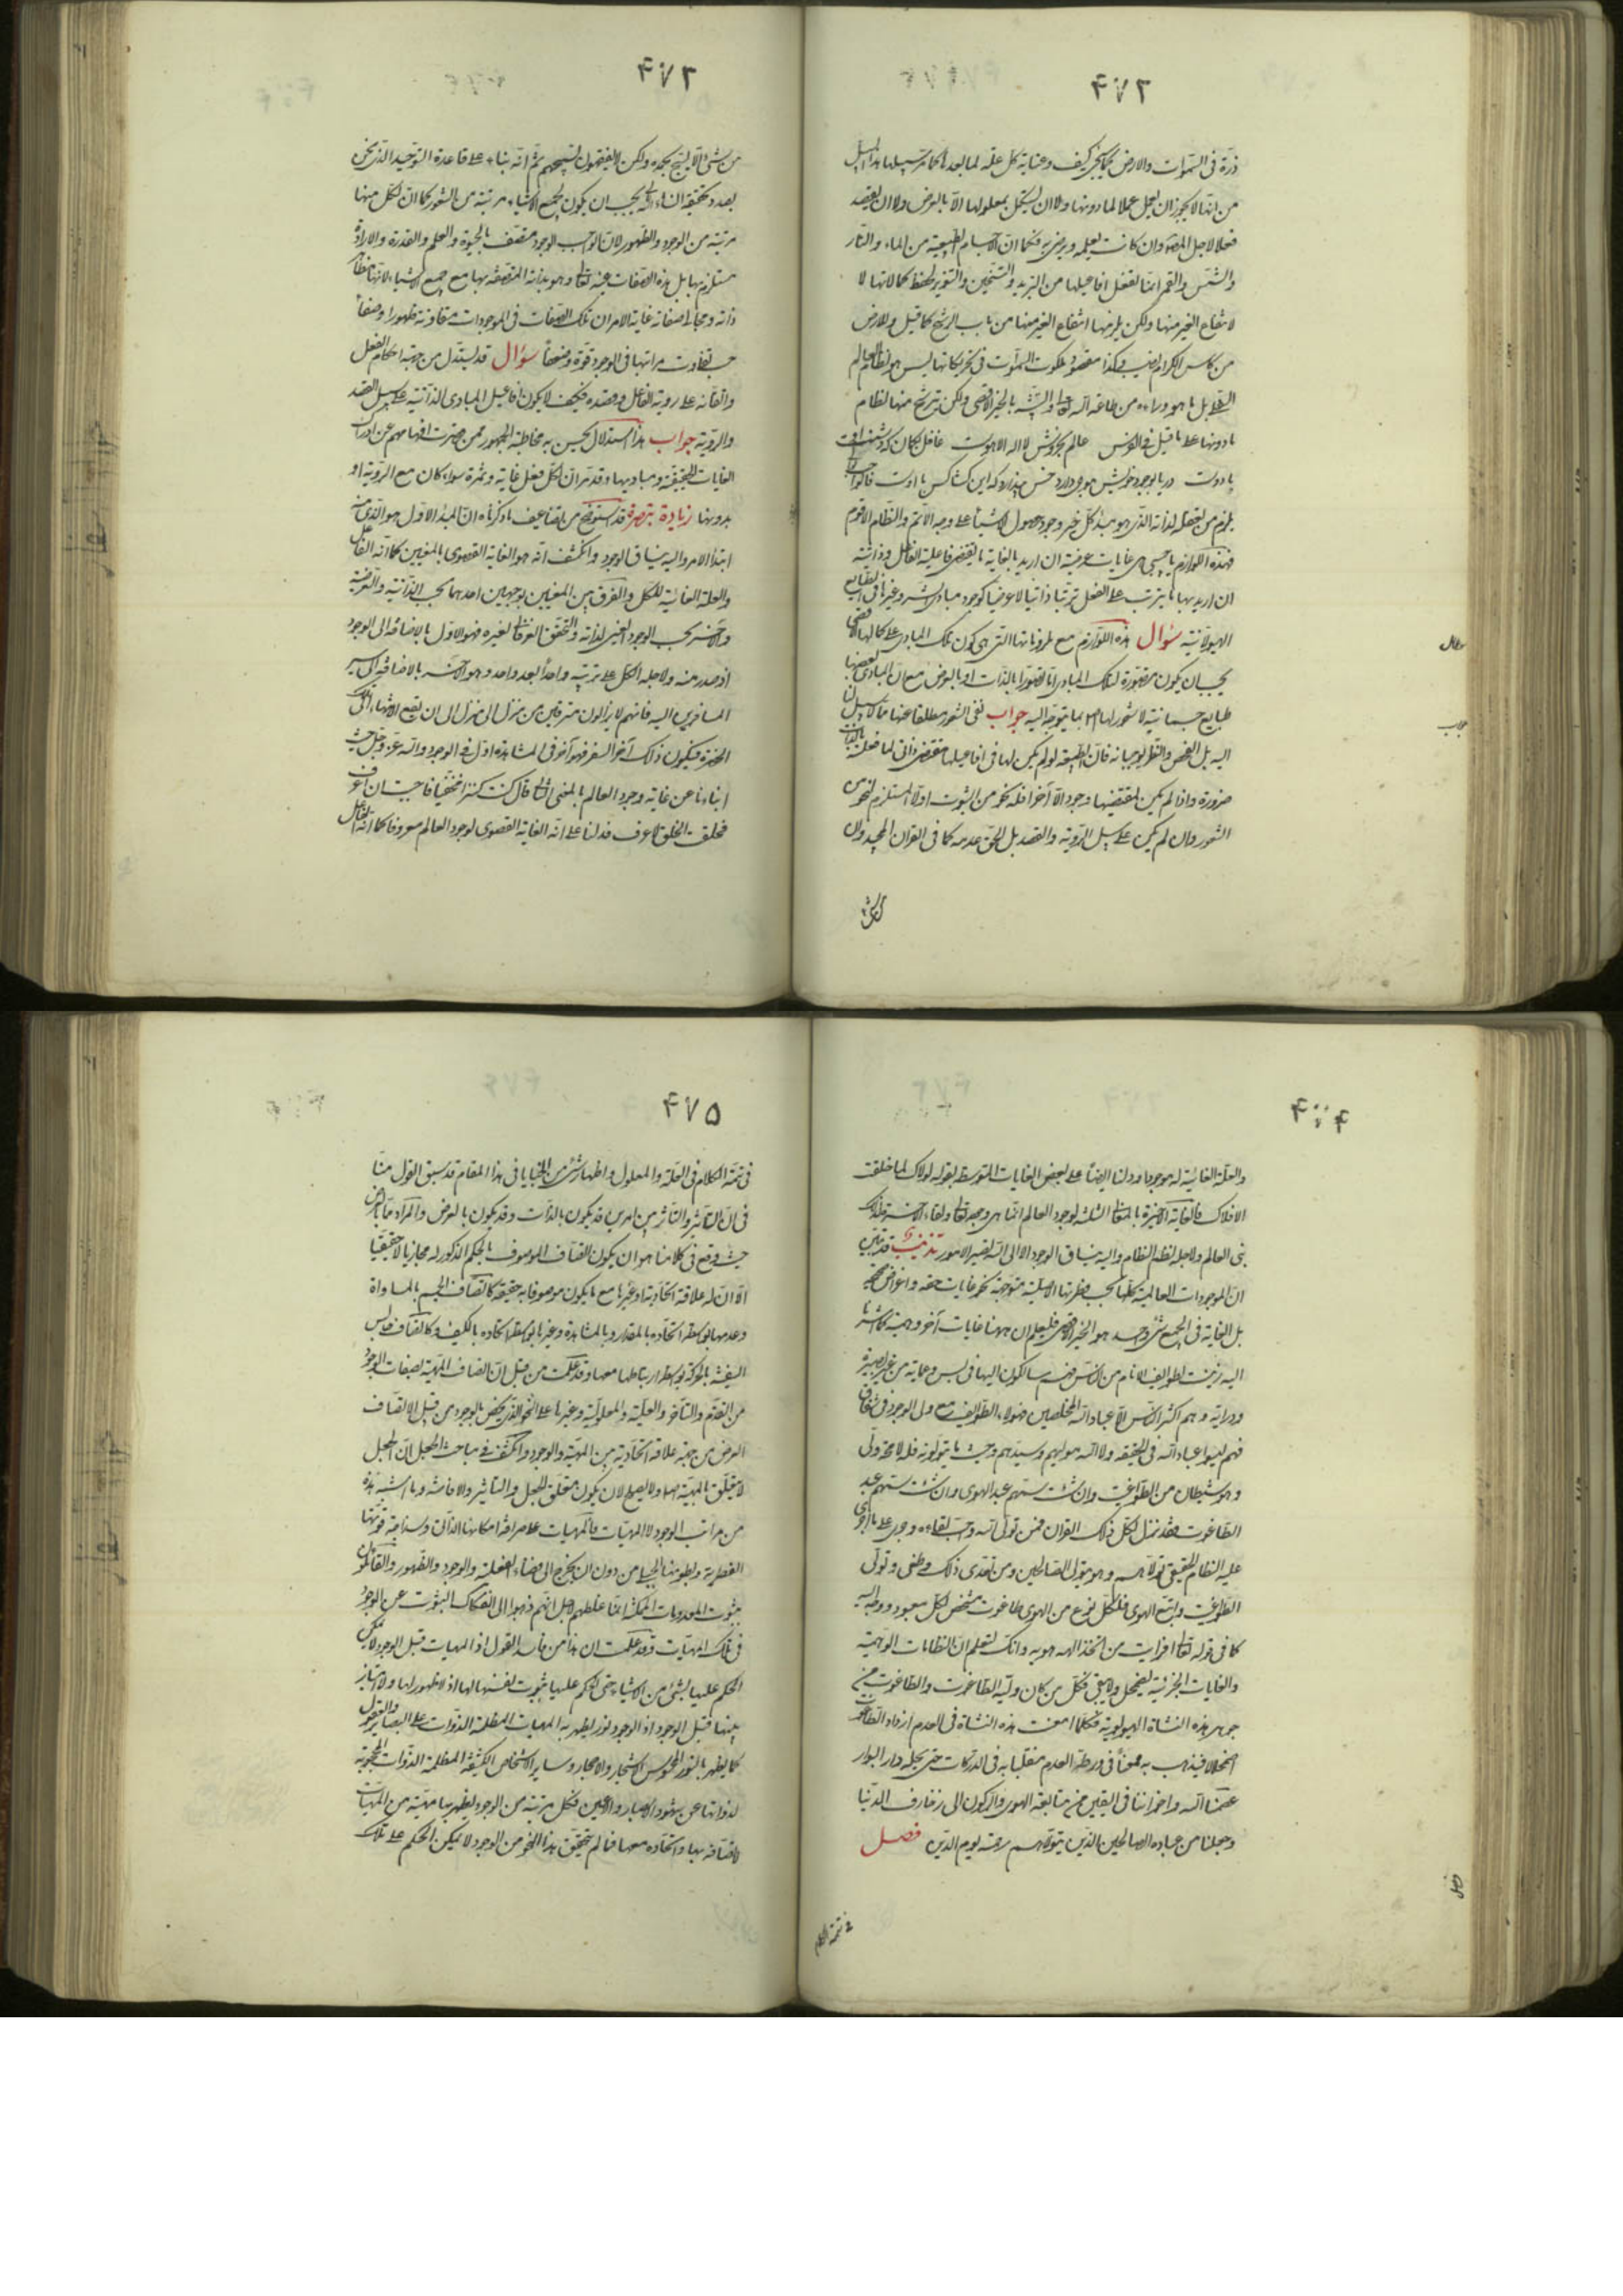 ۴۷۲
ذرة فى السموات والارض فكيف وعناية كل علة لما بعدها كما مر سبيلها هذا السبيل
من انها لا يجوز ان يعمل عملا لما دونها ولا ان يستكمل بمعلولها الا بالعرض ولا ان يقصد
فعلا لاجل المعلول وان كانت يعلمه ويرضى به فكما ان الاجسام الطبيعية من الماء والنار
والشمس والقمر انما تفعل افاعيلها من التبريد والتسخين والتنوير لحفظ كمالاتها لا
لانتفاع الغير منها ولكن يلزمها انتفاع الغير منها من باب الرشح كما قيل وللارض
من كاس الكرام نصيب وكذا مقصود ملكوت السموات فى تحريكاتها ليس هو نظام العالم
السفلى بل ما هو وراءه من طاعة الله تعالى والتشبه بالخير الاقصى ولكن يترشح منها نظام
ما دونها على ما قيل فى الفرس عالم بخروش لا اله الا هوست غافل بگمان كه دشمنست او
يا دوست دريا بوجود خويش موجى دارد خس پندارد كه اين كشاكش با اوست فالواجب تعالى
يلزم من تعقله لذاته الذى هو مبدأ كل خير وجود حصول الاشياء على وجه الاتم والنظام الاقوم
فهذه اللوازم يا حبيبى هى غايات عرضية ان اريد بالغاية ما يقتضى فاعلية الفاعل وذاتية
ان اريد بها ما يترتب على الفعل ترتبا ذاتيا لا عرضيا كوجود مبادى الشر وغيرها فى الطبايع
الهيولانية سؤال هذه اللوازم مع ملزوماتها التى هى كون تلك المبادى على كمالها الاقصى
يجب ان يكون متصورة لتلك المبادى اما تصورا بالذات او بالعرض مع ان المبادى بعضها
طبايع جسمانية لا شعور لها بما يتوجه اليه جواب نفى الشعور مطلقا عنها مما لا سبيل لنا
اليه بل الفحص والنظر يوجبانه فان الطبيعة لو لم يكن لها فى افاعيلها مقتضى ذاتى لما فعلته بالذات
ضرورة واذا لم يكن لمقتضيها وجود الا آخرا فله نحو من الثبوت اولا المستلزم لنحو من
الشعور وان لم يكن على سبيل الروية والقصد بل الحق عدمه كما فى القران المجيد وان
من شئ
سؤال
جواب
۴۷۳
من شئ الا يسبح بحمده ولكن لا تفقهون تسبيحهم ثم انه بناء على قاعدة التوحيد الذى نحن
بصدد تحقيقه انشاء الله يجب ان يكون لجميع الاشياء مرتبة من الشعور كما ان لكل منها
مرتبة من الوجود والظهور لان الواجب الوجود متصف بالحيوة والعلم والقدرة والارادة
مستلزم بها بل هذه الصفات عينه تعالى وهو بذاته المتصفة بها مع جميع الاشياء لانها مظاهر
ذاته ومجالى صفاته غاية الامر ان تلك الصفات فى الموجودات متفاوتة ظهورا وخفاء
حسب تفاوت مراتبها فى الوجود قوة وضعفا سؤال قد يستدل من جهة احكام الفعل
واتقانه على روية الفاعل وقصده فكيف لا يكون افاعيل المبادى الذاتية على سبيل القصد
والروية جواب هذا استدلال يحسن به مخاطبة الجمهور ممن قصرت افهامهم عن ادراك
الغايات الحقيقية ومباديها وقد مر ان لكل فعل غاية وثمرة سواء كان مع الروية او
بدونها زيادة تبصرة قد استوضح من تضاعيف ما ذكرناه ان المبدأ الاول هو الذى منه
ابتدأ الامر واليه ينساق الوجود وانكشف انه هو الغاية القصوى بالمعنيين كما انه الفاعل
والعلة الغائية للكل والفرق بين المعنيين بوجهين احدهما بحسب الذاتية والعرضية
والآخر بحسب الوجود العينى لذاته والتحقق العرفانى لغيره فهو الاول بالاضافة الى الوجود
اذ صدر منه ولاجله الكل على ترتيبه واحدا بعد واحد وهو الآخر بالاضافة الى سير
المسافرين اليه فانهم لا يزالون مترقين من منزل الى منزل الى ان يقع الانتهاء الى تلك
الحضرة فيكون ذلك آخر السفر فهو آخر فى المشاهدة اول فى الوجود والله عز وجل حيث
انباءنا عن غاية وجود العالم بالمعنى الثانى قال كنت كنزا مخفيا فاحببت ان اعرف
فخلقت الخلق لاعرف فدلنا على انه الغاية القصوى لوجود العالم معروفا كما انه الفاعل
۴۷۴
والعلة الغائية له موجودا ودلنا ايضا على بعض الغايات المتوسطة بقوله لولاك لما خلقت
الافلاك فالغاية الاخيرة بالمعنى الثالث لوجود العالم انما هى وجوده تعالى ولقاء الآخرة ولذلك
بنى العالم ولاجله نظم النظام واليه ينساق الوجود الا الى الله تصير الامور تذنيب قد تبين
ان الموجودات العالمية كلها بحسب فطرتها الاصلية متوجهة نحو غايات حقة واغراض صحيحة
بل الغاية فى الجميع شئ واحد هو الخير الاقصى فليعلم ان ههنا غايات آخر وهمية كما اشرنا
اليه زينت لطوايف الانام من الناس فهم سالكون اليها فى لبس وعماية من غير بصيرة
ودراية وهم اكثر الناس الا عباد الله المخلصين فهؤلاء الطوايف مع ولى الوجود فى شقاق
فهم ليسوا عباد الله فى الحقيقة ولا الله موليهم وسيدهم وحيث ما يتولونه فله لا محة ولى
وهو شيطان من الطواغيت وان شئت سمهم عبد الهوى وان شئت سمهم عبد
الطاغوت فقد نزل لكل ذلك القران فمن تولى الله واحب لقاءه وجرى على ما اجرى
عليه النظام الحقيقى تولاه الله وهو يتولى الصالحين ومن تعدى ذلك وطغى وتولى
الطواغيت واتبع الهوى فلكل نوع من الهوى طاغوت مشخص لكل معبود ووجه اليه
كما فى قوله تعالى افرايت من اتخذ الهه هويه وانك لتعلم ان النظامات الوهمية
والغايات الجزئية تضمحل ولا يبقى فكل من كان وليه الطاغوت والطاغوت من
جوهر هذه النشاة الهيولوية فكلما امعنت هذه النشاة فى العدم ازداد الطاغوت
اضمحلالا فيذهب به ممعنا فى ورطة العدم منقلبا به فى الدركات حتى يحله دار البوار
عصمنا الله واخواننا فى اليقين من متابعة الهوى والركون الى زخارف الدنيا
وجعلنا من عباده الصالحين الذين يتولاهم رحمته يوم الدين فصل
فى تتمة الكلام
فصل
۴۷۵
فى تتمة الكلام فى العلة والمعلول واظهار شئ من الخبايا فى هذا المقام قد سبق القول منا
فى ان التاثير والتاثر بين امرين قد يكون بالذات وقد يكون بالعرض والمراد مما بالعرض
حيث وقع فى كلامنا هو ان يكون اتصاف الموصوف بالحكم المذكور له مجازيا لا حقيقيا
الا ان له علاقة اتحادية او غيرها مع ما يكون موصوفا به حقيقة كاتصاف الجسم بالمساواة
وعدمها بواسطة اتحاده بالمقدار وبالمشابهة وغيرها بواسطة اتحاده بالكيف وكاتصاف جالس
السفينة بالحركة بواسطة ارتباطها معها وقد علمت من قبل ان اتصاف المهية بصفات الوجود
من التقدم والتاخر والعلية والمعلولية وغيرها على النحو الذى يختص بالوجود من قبيل الاتصاف
العرضى من جهة علاقة اتحادية بين المهية والوجود وانكشف فى مباحث الجعل ان الجعل
لا يتعلق بالمهية اصلا ولا يصلح لان يكون متعلق الجعل والتاثير والافاضة وما اشبه هذه
من مراتب الوجود لا المهيات فالمهيات على صرافة امكانها الذاتى وسذاجة قوتها
الفطرية وبطونها الجبلى من دون ان يخرج الى فضاء الفعلية والوجود والظهور والقائلون
بثبوت المعدومات الممكنة انما غلطهم لاجل انهم ذهبوا الى انفكاك الثبوت عن الوجود
فى تلك المهيات وقد علمت ان هذا من فاسد القول اذ المهيات قبل الوجود لا يمكن
الحكم عليها بشئ من الاشياء حتى الحكم عليها بثبوت نفسها لها اذ لا ظهور لها ولا امتياز
بينها قبل الوجود اذ الوجود نور يظهر به المهيات المظلمة الذوات على البصاير والعقول
كما يظهر بالنور المحسوس الاشجار والاحجار وساير الاشخاص الكثيفة المظلمة الذوات المحجوبة
لذواتها عن شهود الابصار والاعين فكل مرتبة من الوجود يظهر بها مهية من المهيات
لاتصافه بها واتحاده معها فما لم يتحقق هذا النحو من الوجود لا يمكن الحكم على تلك